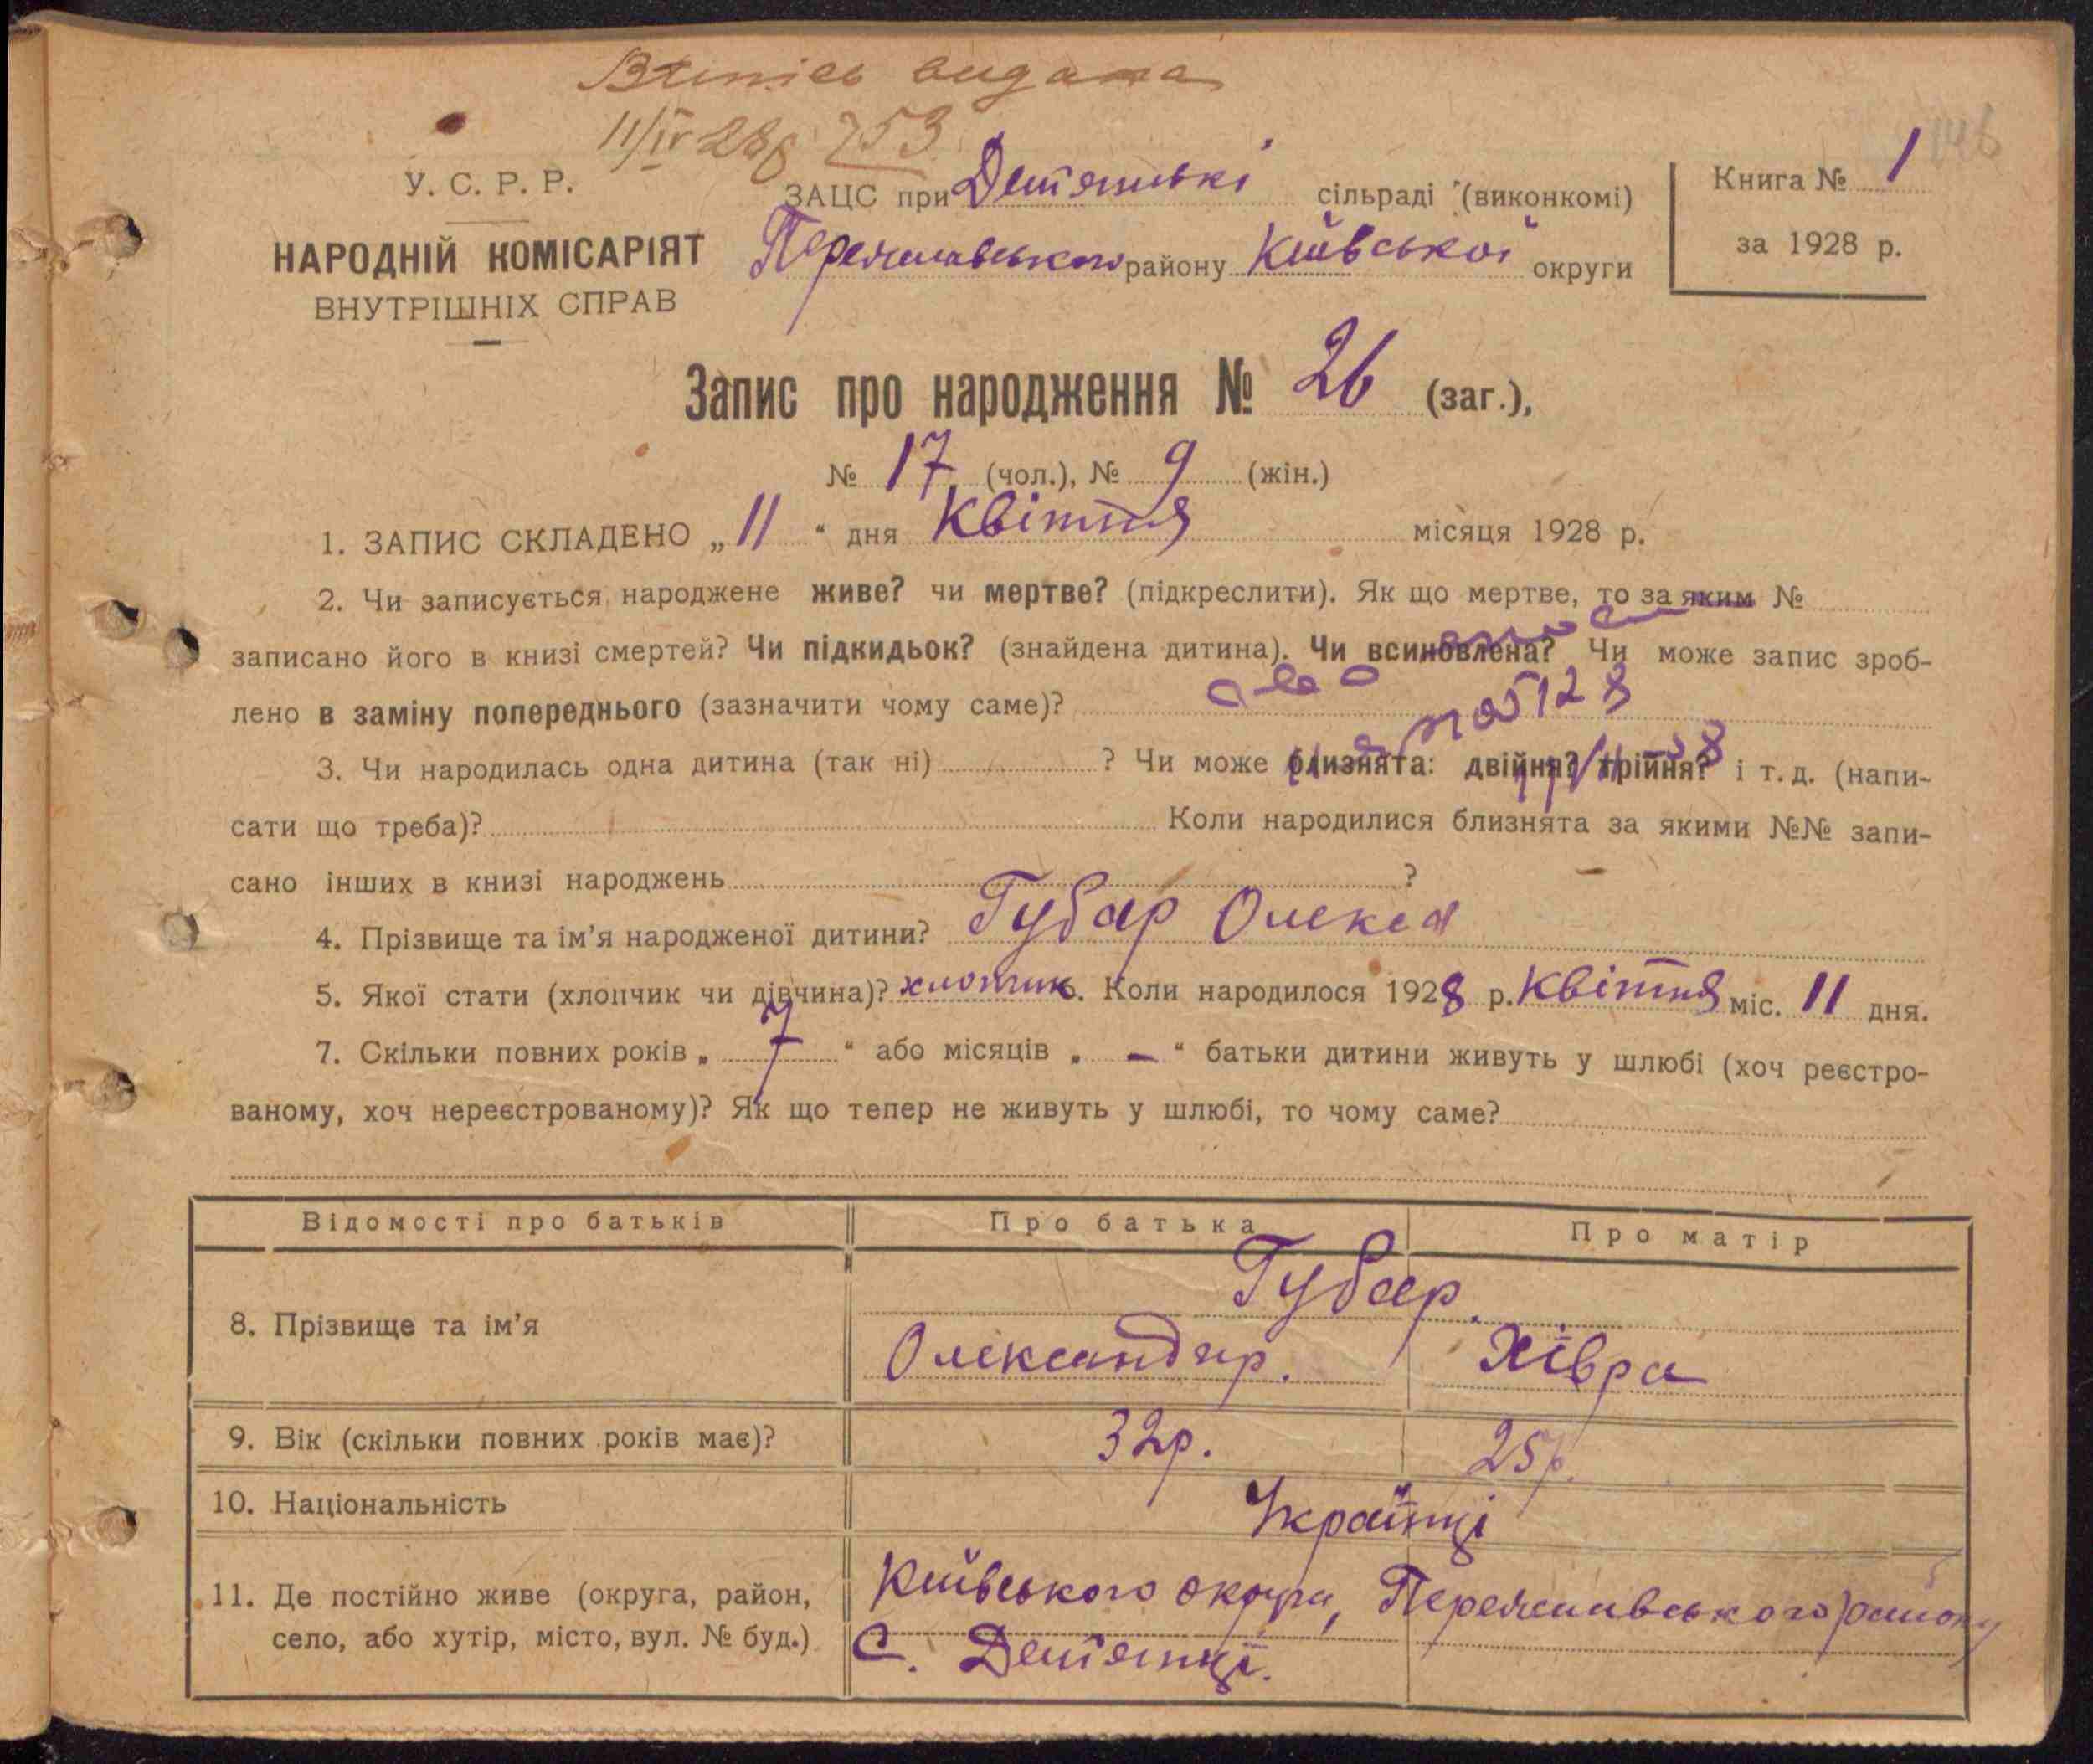 видана
11/IV 28р 253
146
У. С. Р. Р.
ЗАЦС при Демʼянській сільраді (виконкомі)
Книга № 1
НАРОДНІЙ КОМІСАРІЯТ
Переяславського району Київської округи
за 1928 р.
ВНУТРІШНІХ СПРАВ
Запис про народження № 26 (заг.),
№ 17 (чол.), № 9 (жін.)
1. ЗАПИС СКЛАДЕНО „11“ дня Квітня місяця 1928 р.
2. Чи записується народжене живе? чи мертве? (підкреслити). Як що мертве, то за яким №
записано його в книзі смертей? Чи підкидьок? (знайдена дитина). Чи всиновлена? Чи може запис зроб-
лено в заміну попереднього (зазначити чому саме)?
3. Чи народилась одна дитина (так ні) ? Чи може близнята: двійня? трійня? і т. д. (напи-
сати що треба)? Коли народилися близнята за якими №№ запи-
сано інших в книзі народжень ?
4. Прізвище та ім'я народженої дитини? Губар Олекса
5. Якої стати (хлопчик чи дівчина)? хлопчик. Коли народилося 1928 р. Квітня міс. 11 дня.
7. Скільки повних років „ 7 “ або місяців „ — “ батьки дитини живуть у шлюбі (хоч реєстро-
ваному, хоч нереєстрованому)? Як що тепер не живуть у шлюбі, то чому саме?
Відомості про батьків Про батька Про матір
Губар.
8. Прізвище та ім'я Олександр. Хівра
9. Вік (скільки повних років має)? 32р. 25р.
10. Національність Українці
11. Де постійно живе (округа, район, Київського округи, Переяславського району
село, або хутір, місто, вул. № буд.) С. Демʼянці.